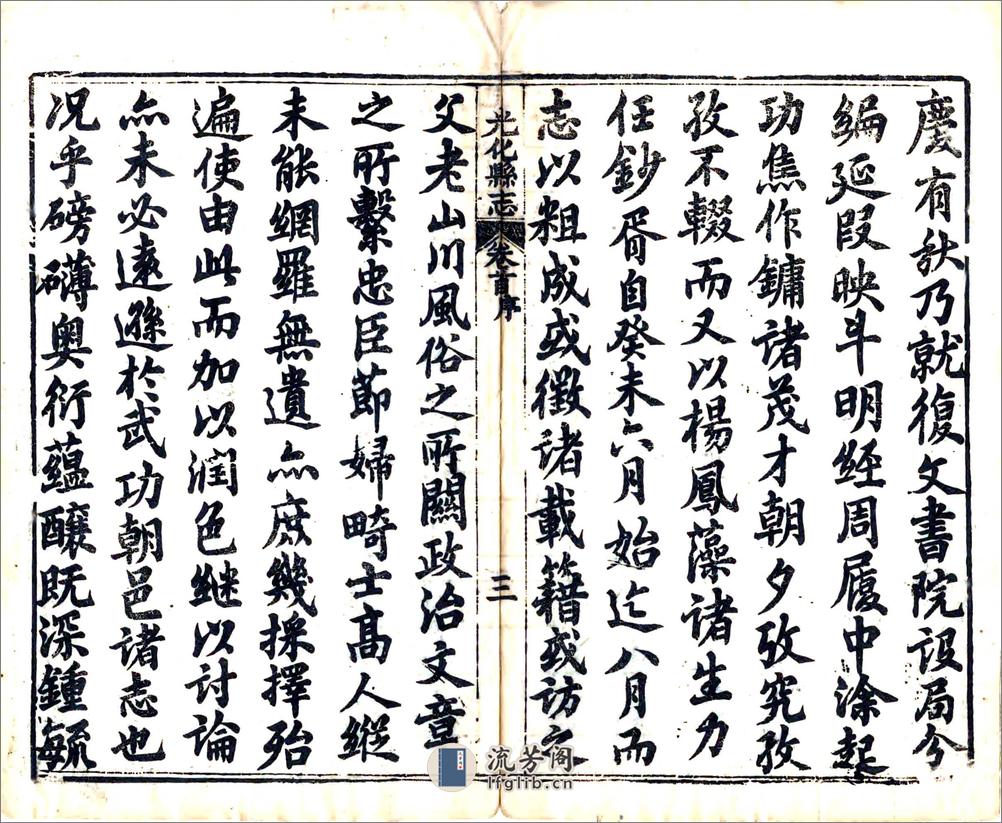 慶有秋乃就復文書院設局分
編延段映斗明經周履中涂起
功焦作鏞諸茂才朝夕攷究孜
孜不輟而又以楊鳳藻諸生力
任鈔胥自癸未六月始迄八月而
志以粗成或徵諸載籍或访之
光化縣志 卷首序 三
父老山川風俗之所關政治文章
之所繫忠臣節婦畸士高人縱
未能網羅無遺亦庶幾採擇殆
遍使由此而加以潤色继以讨論
亦未必遠遜於武功朝邑諸志也
况乎磅礴奧衍蘊釀既深鍾毓
流芳阁
lfglib.cn